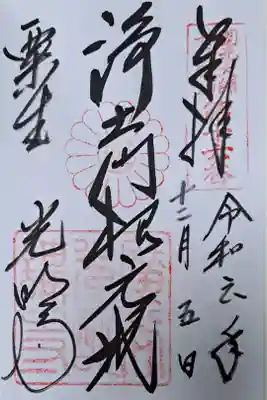 奉拝
令和六年
十二月五日
浄土門根元地
粟生
光明寺